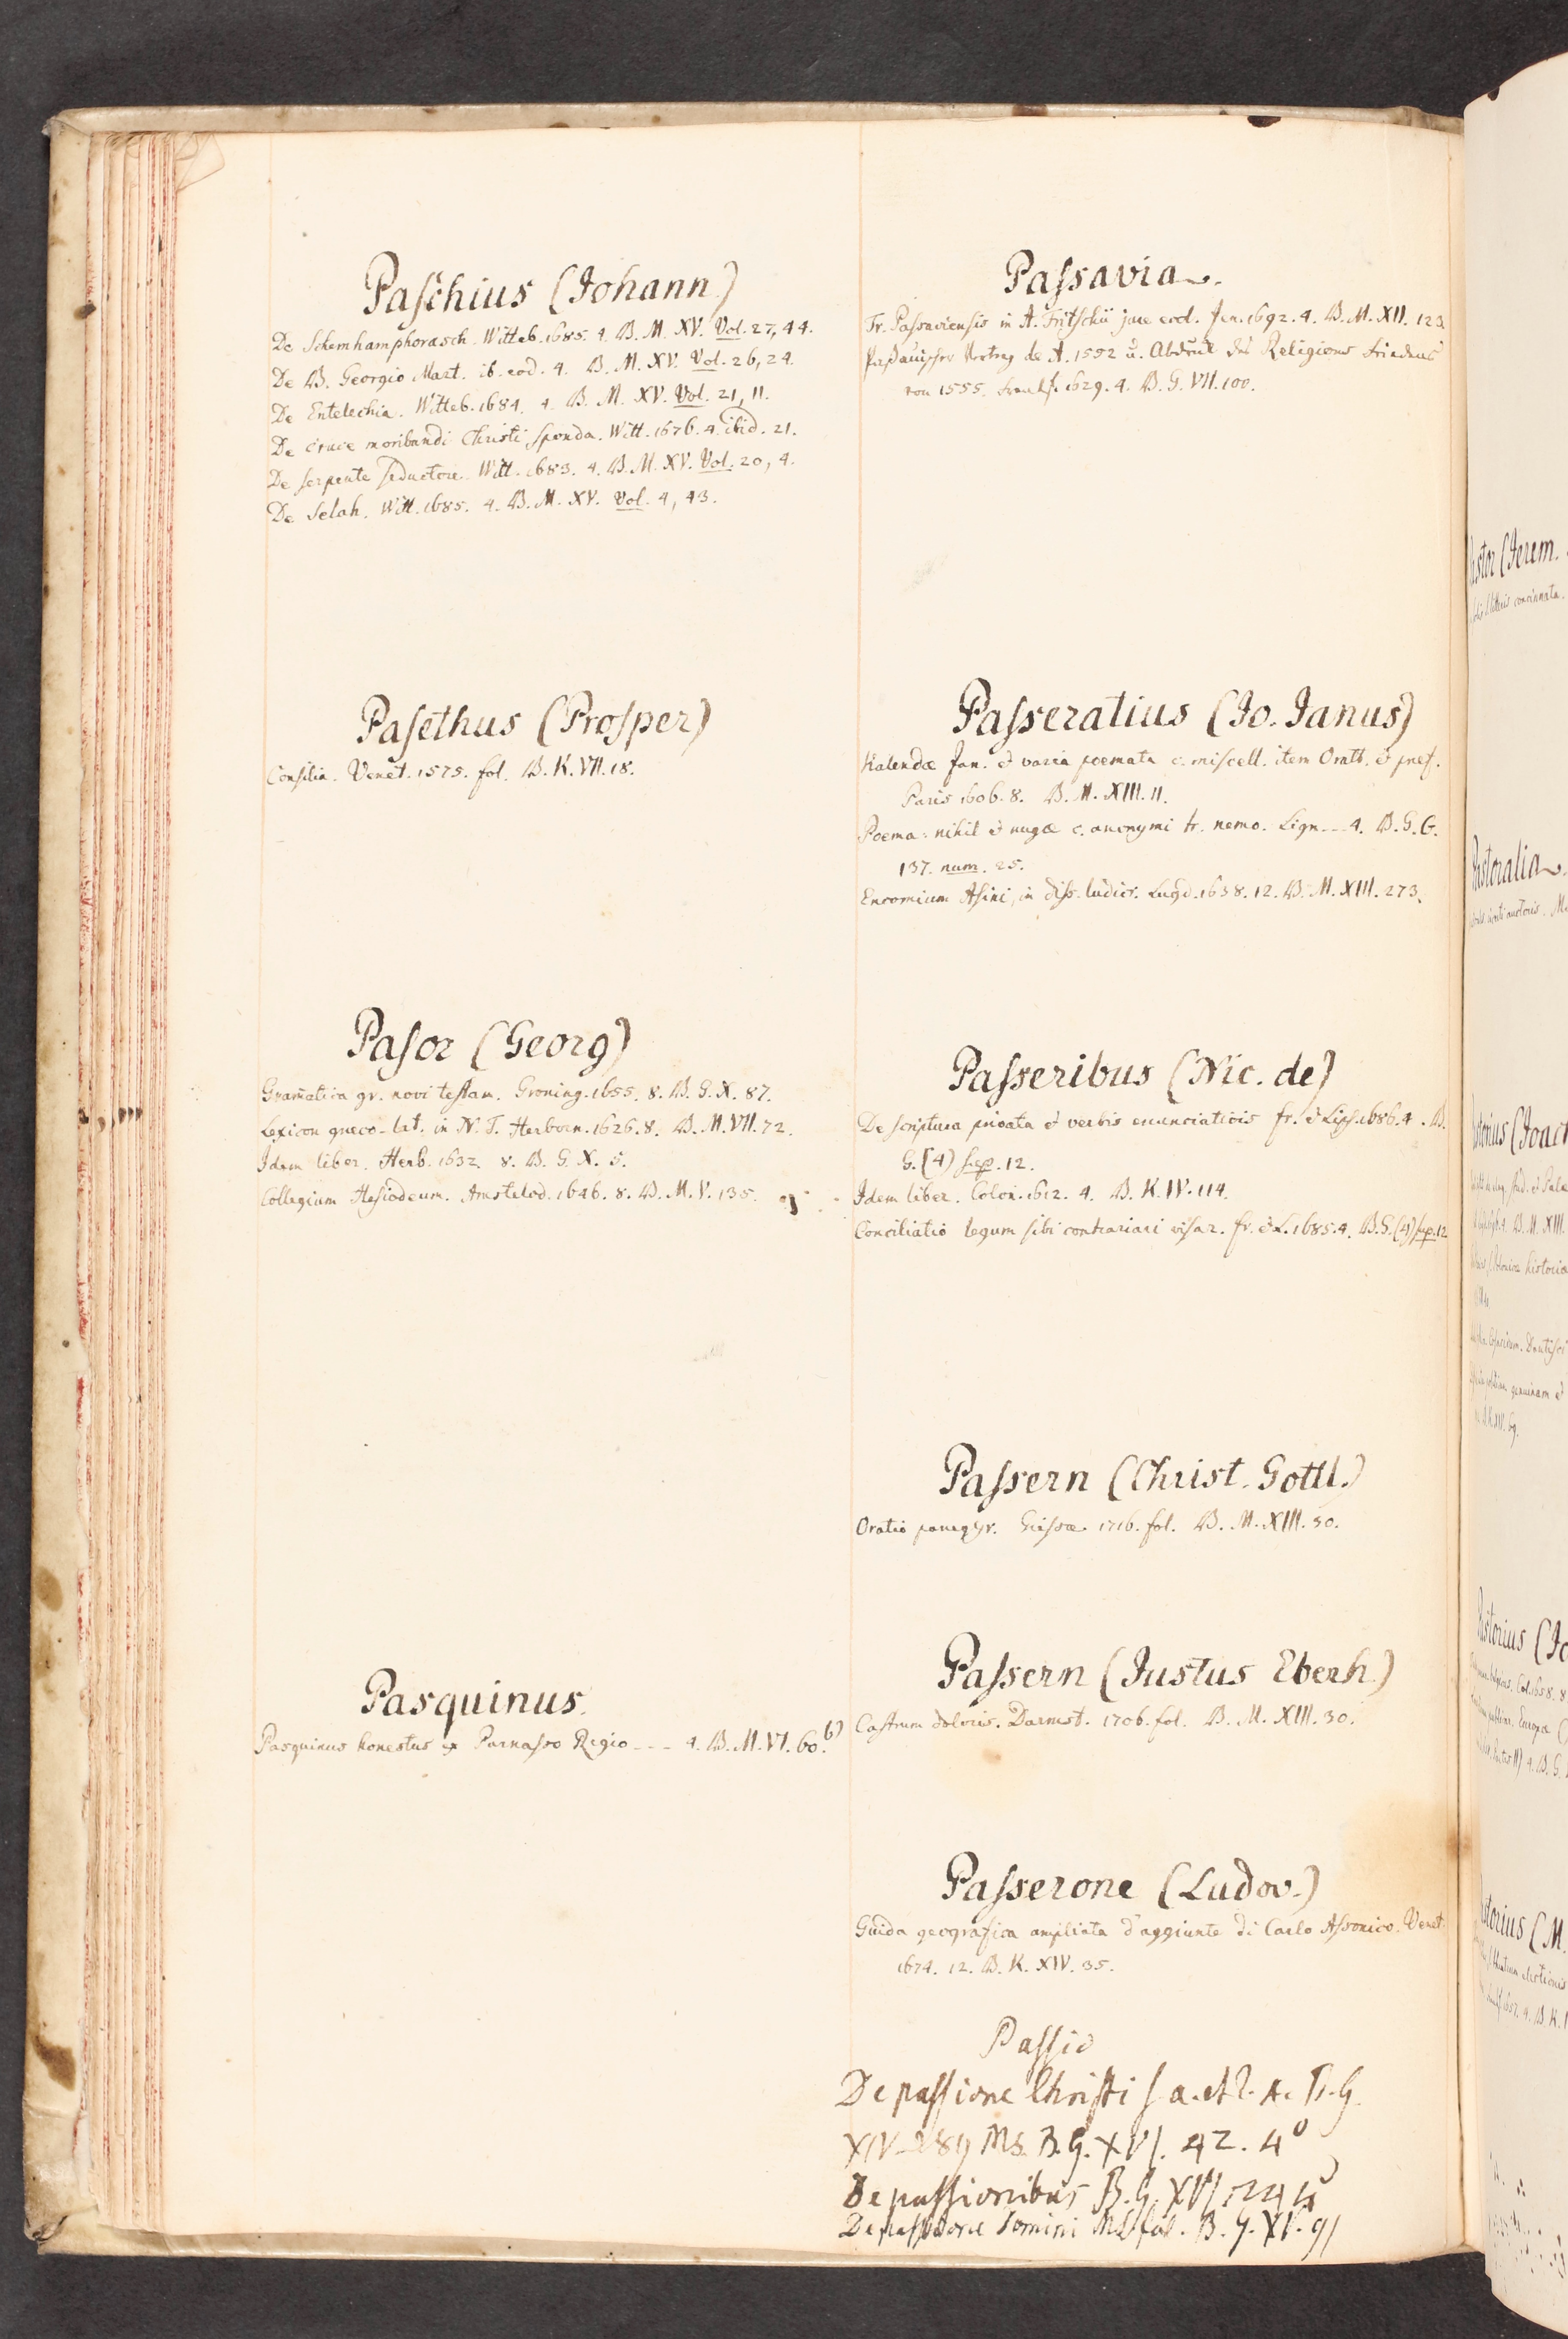 Paschius (Johann)
De Schemhamphorasch. Witteb. 1685. 4. B. M. XV. Vol. 27, 44.
De B. Georgio Mart. ib. eod. 4. B. M. XV. Vol. 26, 24.
De Entelechia. Witteb. 1684. 4. B. M. XV. Vol. 21, 11.
De cruce moribundi Christi sponda. Witt. 1676. 4. ibid. 21.
De serpente seductore. Witt. 1683. 4. B. M. XV. Vol. 20, 4.
De Selah. Witt. 1685. 4. B. M. XV. Vol. 4, 43.
Pasethus (Prosper)
Consilia. Venet. 1575. fol. B. K. VII. 18.
Pasor (Georg)
Gram̃atica gr. novi testam. Groning. 1655. 8. B. G. X. 87.
Lexicon graeco-lat. in N. T. Herborn. 1626. 8. B. M. VII. 72.
Idem liber. Herb. 1632. 8. B. G. X. 5.
Collegium Hesiodeum. Amstelod. 1646. 8. B. M. V. 135.
Pasquinus.
Pasquinus honestus ex Parnasso Regio --- 4. B. M. VI. 60. b)
Passavia.
Tr. Passaviensis in A. Fritschii jure eccl. Jen. 1692. 4. B. M. XII. 123
Paßauischer Vertrag de A. 1552 u. Abdruk des Religions Friedens
von 1555. Frankf. 1629. 4. B. G. VII. 100.
Passeratius (Jo. Janus)
Kalendæ Jan. & varia poemata c. miscell. item Oratt. & præf.
Paris 1606. 8. B. M. XIII. 11.
Poema: nihil & nugæ c. anonymi tr. nemo. Lign --- 4. B. G. G.
137. num. 25.
Encomium Asini, in diss. ludicr. Lugd. 1638. 12. B. M. XIII. 273.
Passeribus (Nic. de)
De scriptura privata & verbis enunciativis fr. & Lips. 1686. 4. B.
G. (4) sup. 12.
Idem liber. Colon. 1612. 4. B. K. IV. 114.
Conciliatio legum sibi contrariari visar. fr. & L. 1685. 4. B. G. (4) sup. 12
Passern (Christ. Gottl.)
Oratio panegyr. Giessæ 1716. fol. B. M. XIII. 30.
Passern (Justus Eberh.)
Castrum doloris. Darmst. 1706. fol. B. M. XIII. 30.
Passerone (Ludov.)
Guida geografica ampliata d'aggiunte di Carlo Assonico. Venet.
1674. 12. B. K. XIV. 35.
Passio
De passione Christi s. a. et l.
XIV. 289 Ms. B. G. XVI. 42. 4°
De passionibus B. G. XVI
De passione Domini Ms. fol. B. G. XV. 91
Pastoralia